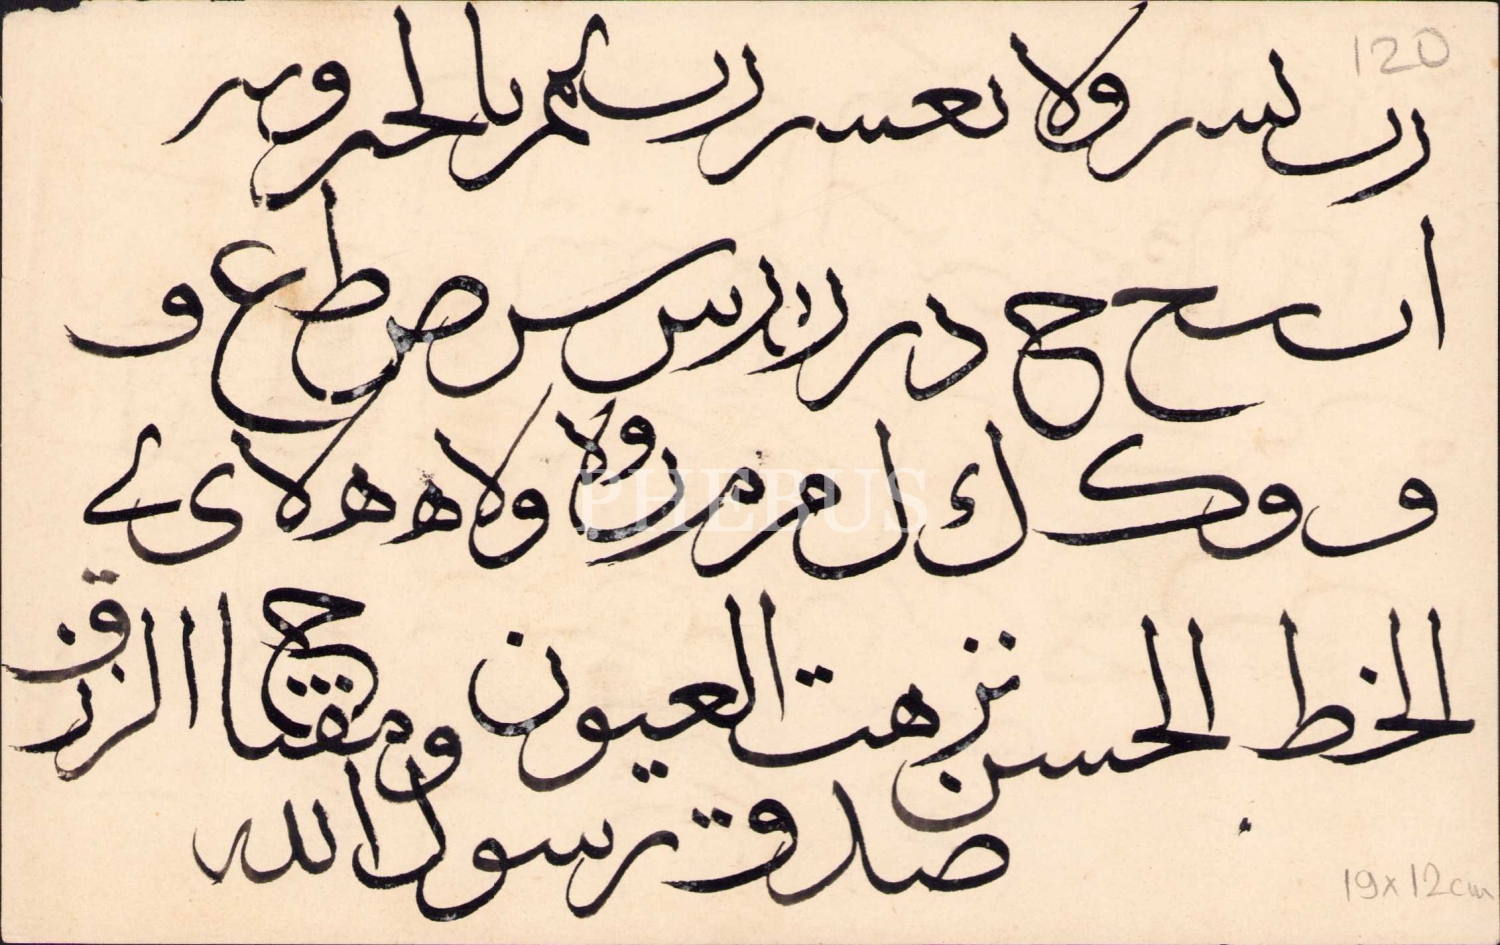 120
رب يسر ولا تعسر رب تمم بالخير وبه
ا ب ج ح د ر ر لر بر س س ص ط ع و
و و ک ك ل م م ر وه ولا ه ه لا ى ے
الخط الحسن نزهت العيون و مفتاح الرزق
صدق رسول الله
PHEBUS
19x12cm